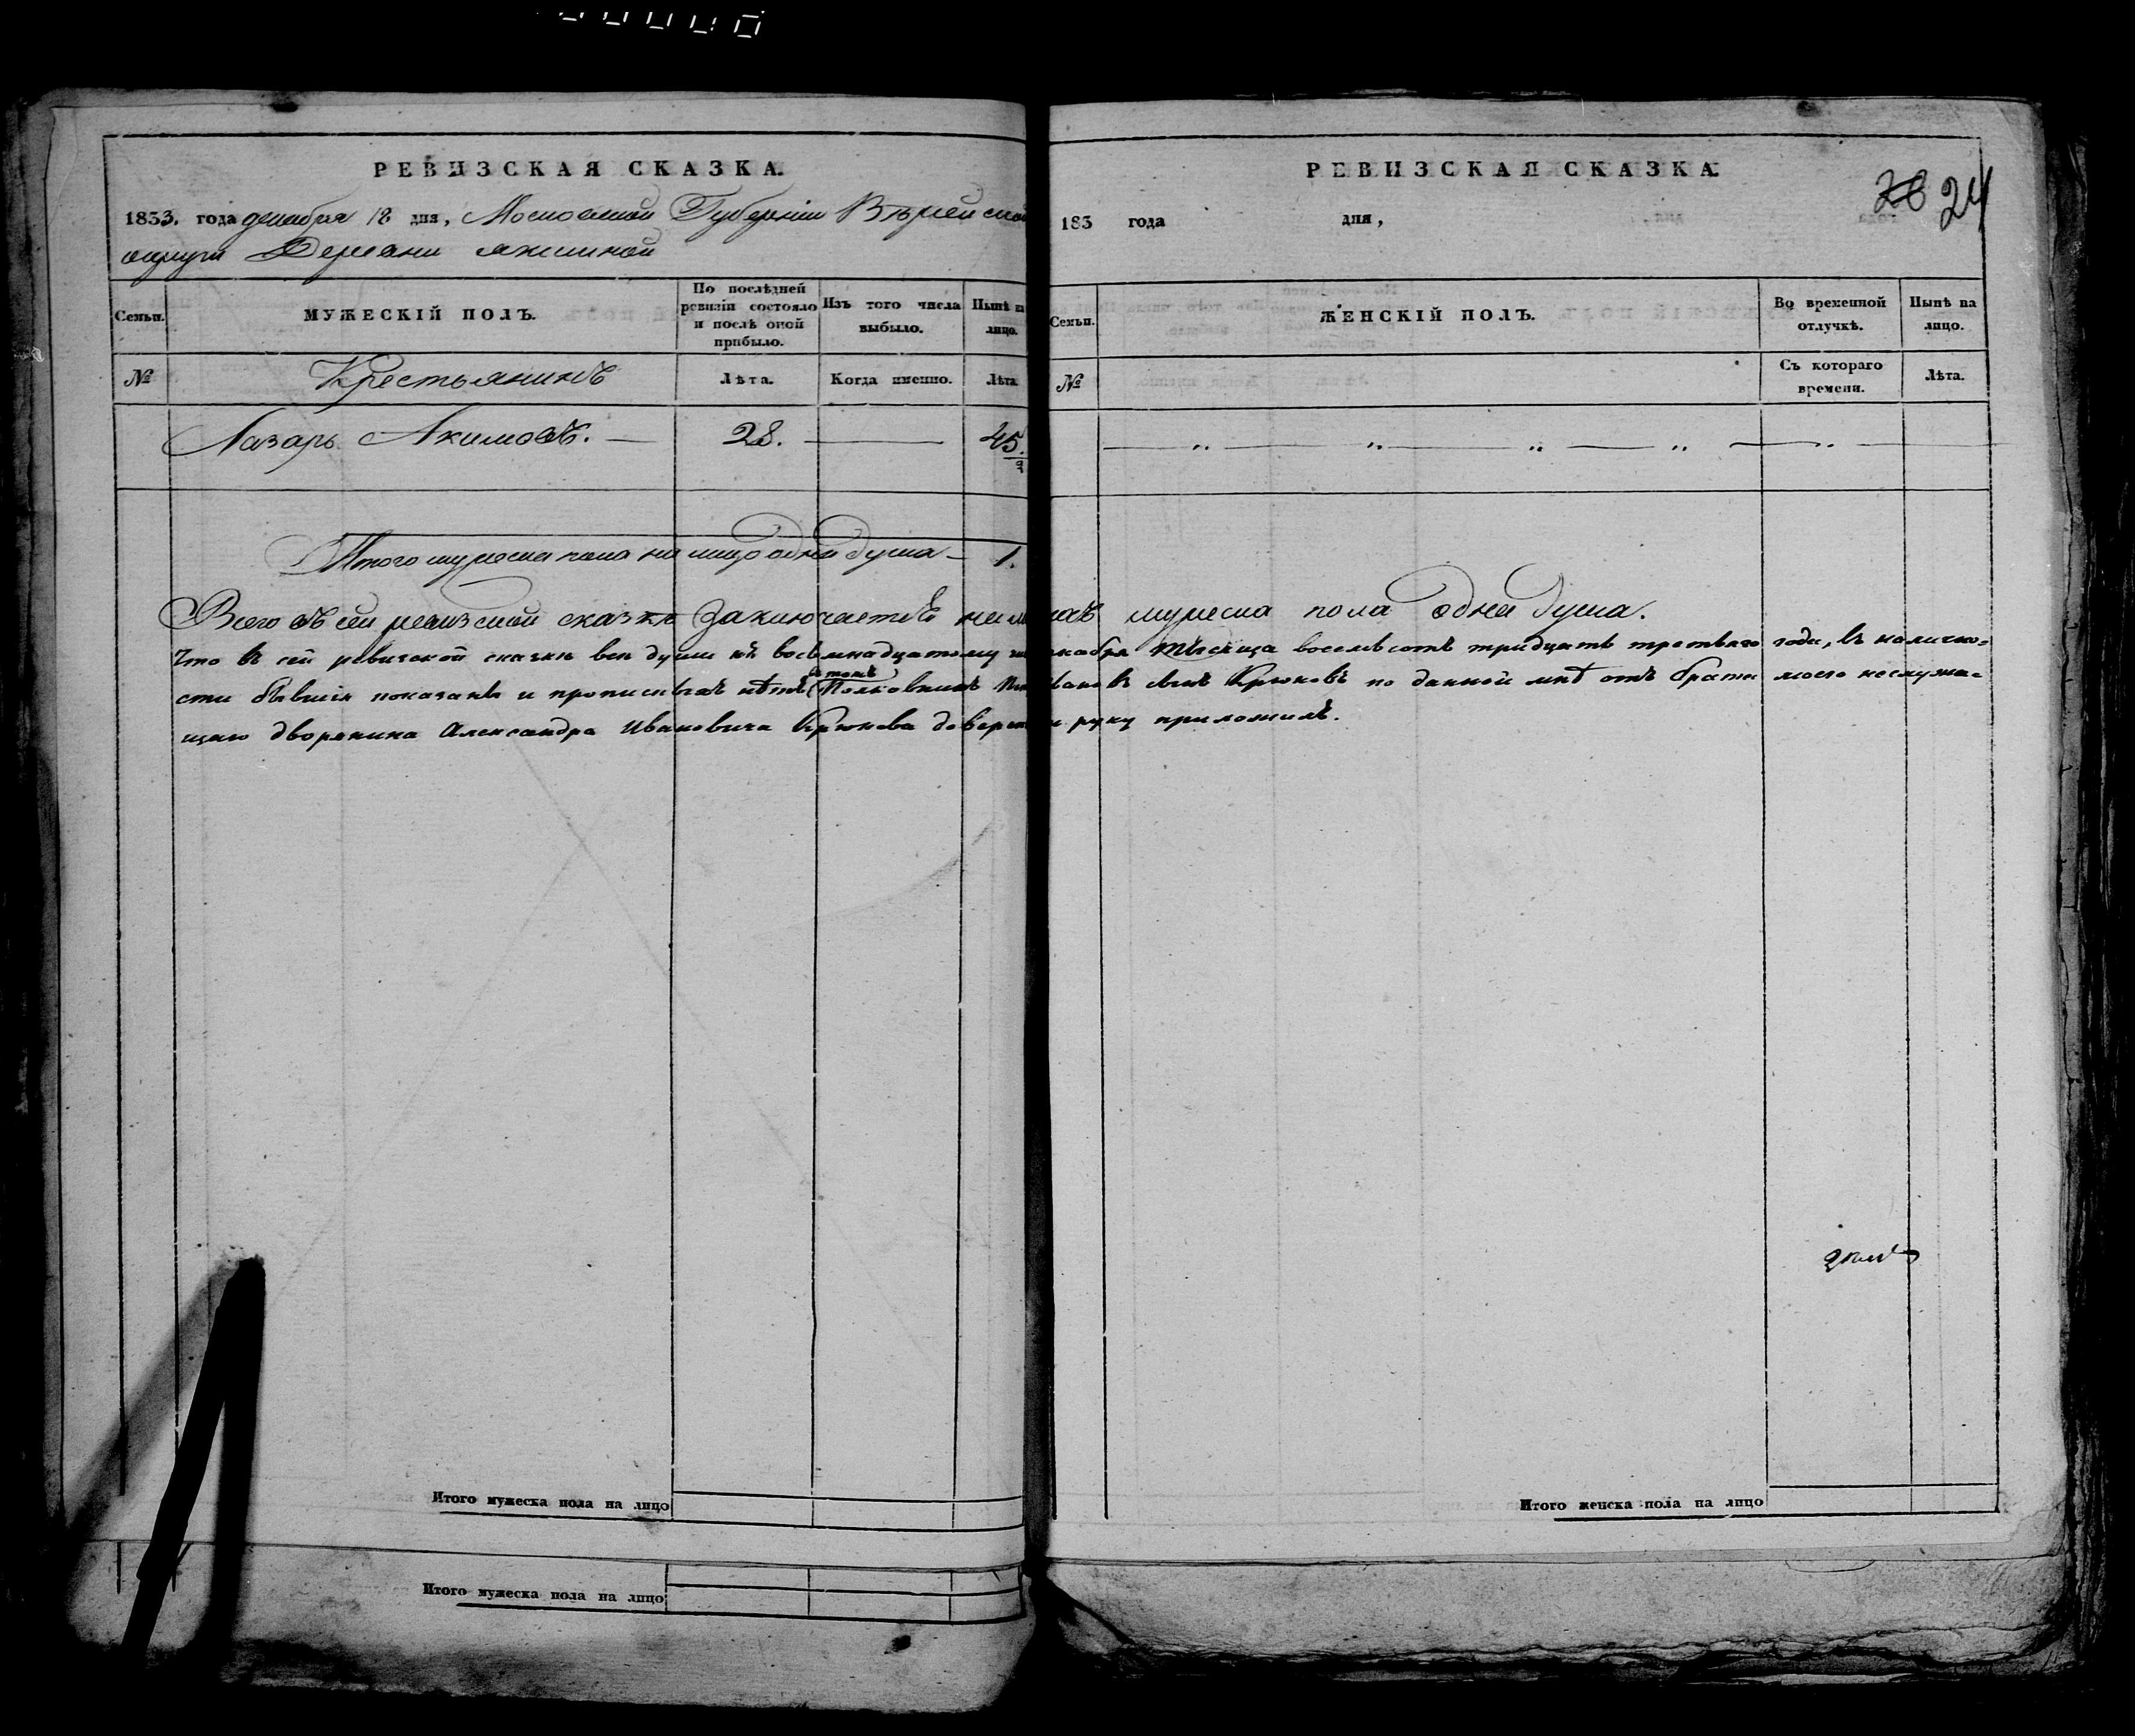 РЕВИЗСКАЯ СКАЗКА.
1833. года декабря 18 дня, Московской Губерніи Верейской
округи Деревни
Семьи.
МУЖЕСКІЙ ПОЛЪ.
По послѣдней ревизіи состояло и послѣ оной прибыло.
Изъ того числа выбыло.
Нынѣ на лицо.
№
Крестьянинъ
Лѣта.
Когда именно.
Лѣта
Лазарь Акимовъ. — 28. — 45.
Итого мужеска пола на лицо одна душа — 1.
Всего въ сей ревизской сказкѣ заключается мужеска пола одна душа.
Что в сей ревизской сказки все души къ восемнадцатому мѣсяца восемьсотъ тридцать третьяго года, въ налично-
сти бывшія показаны и прописныхъ нѣтъ въ томъ Полковникъ Крюковъ по данной мнѣ отъ брата моего неслужа-
щаго дворянина Александра Ивановича Крюкова руку приложилъ.
Итого мужеска пола на лицо
Итого мужеска пола на лицо
РЕВИЗСКАЯ СКАЗКА.
28 24
183 года дня,
Семьи.
ЖЕНСКІЙ ПОЛЪ.
Во временной отлучкѣ.
Нынѣ на лицо.
№
Съ котораго времени.
Лѣта.
Итого женска пола на лицо